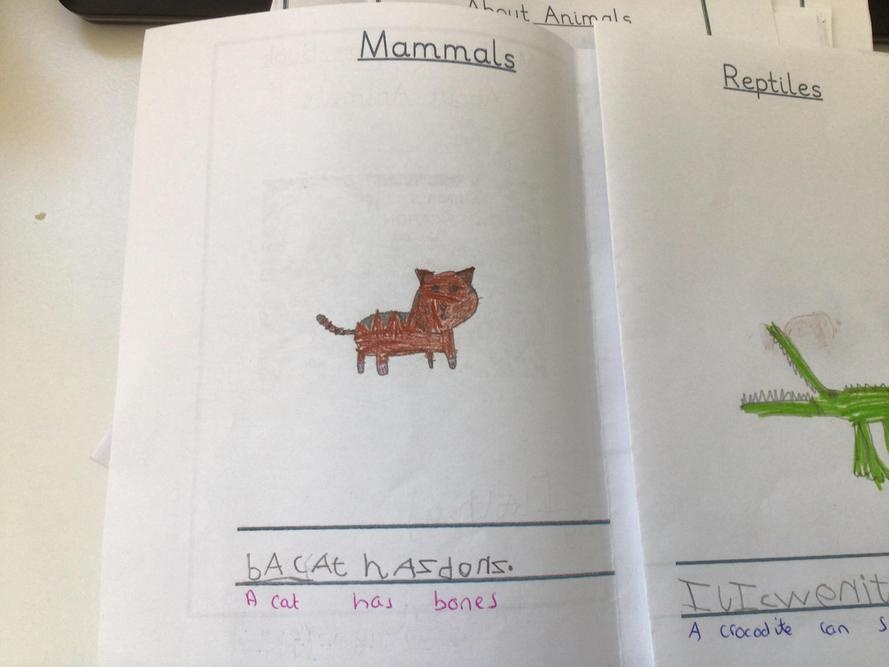 About Animals
Mammals
bA CAt hASdons.
A cat has bones
Reptiles
A crocodite can s